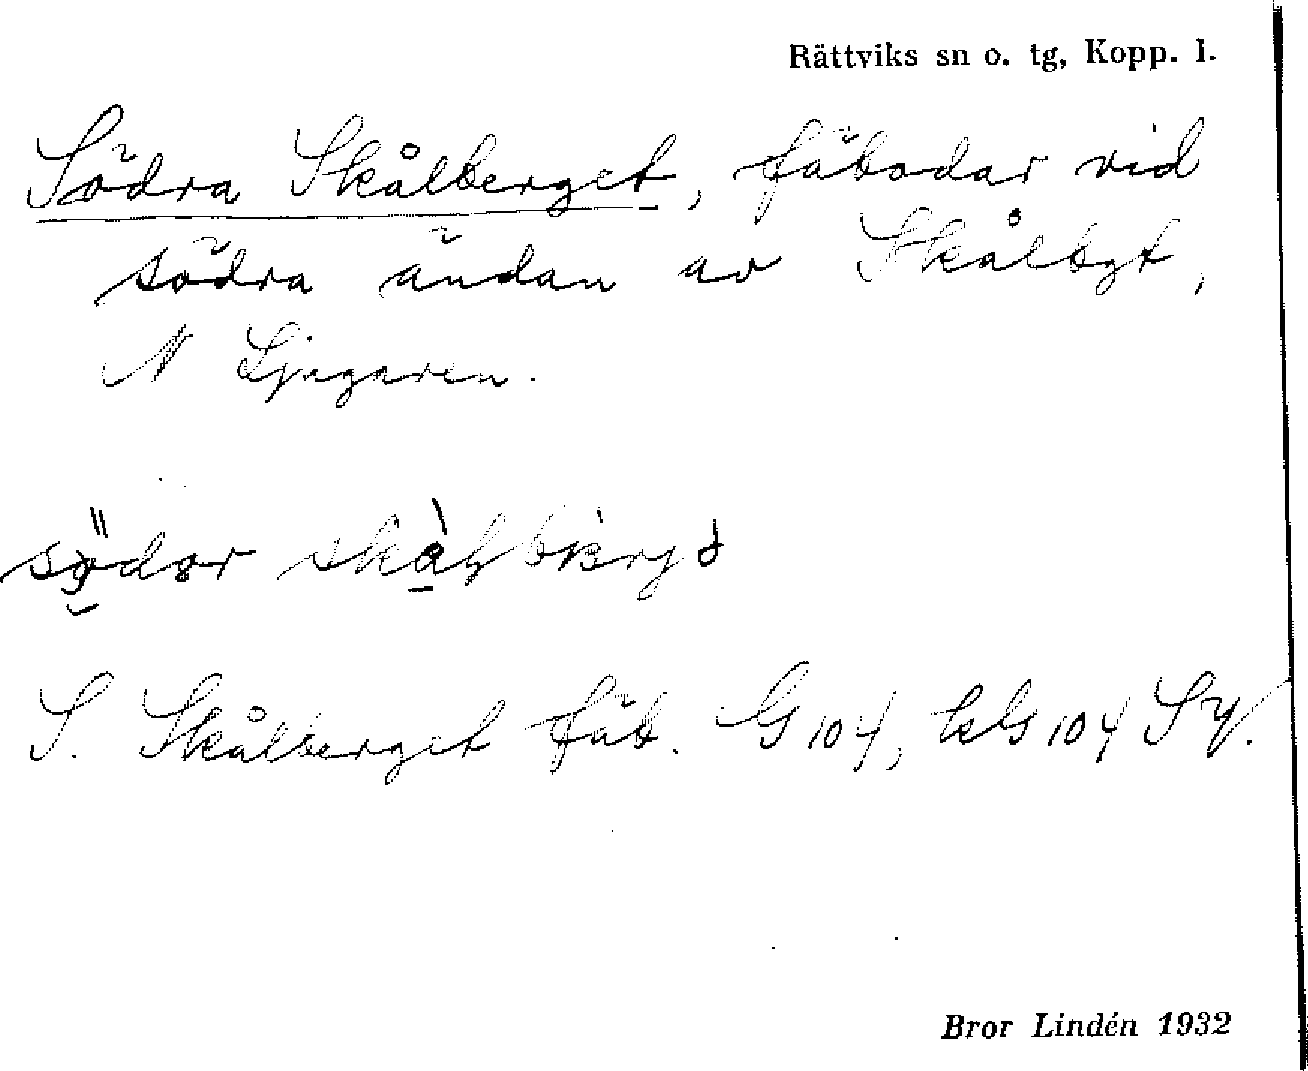 Rättviks sn o. tg, Kopp. l.
Södra Skålberget, fäbodar vid
södra ändan av Skålbgt,
N Ljugaren.
S. Skålberget fäb. G 104, kG 104 SV.
Bror Lindén 1932